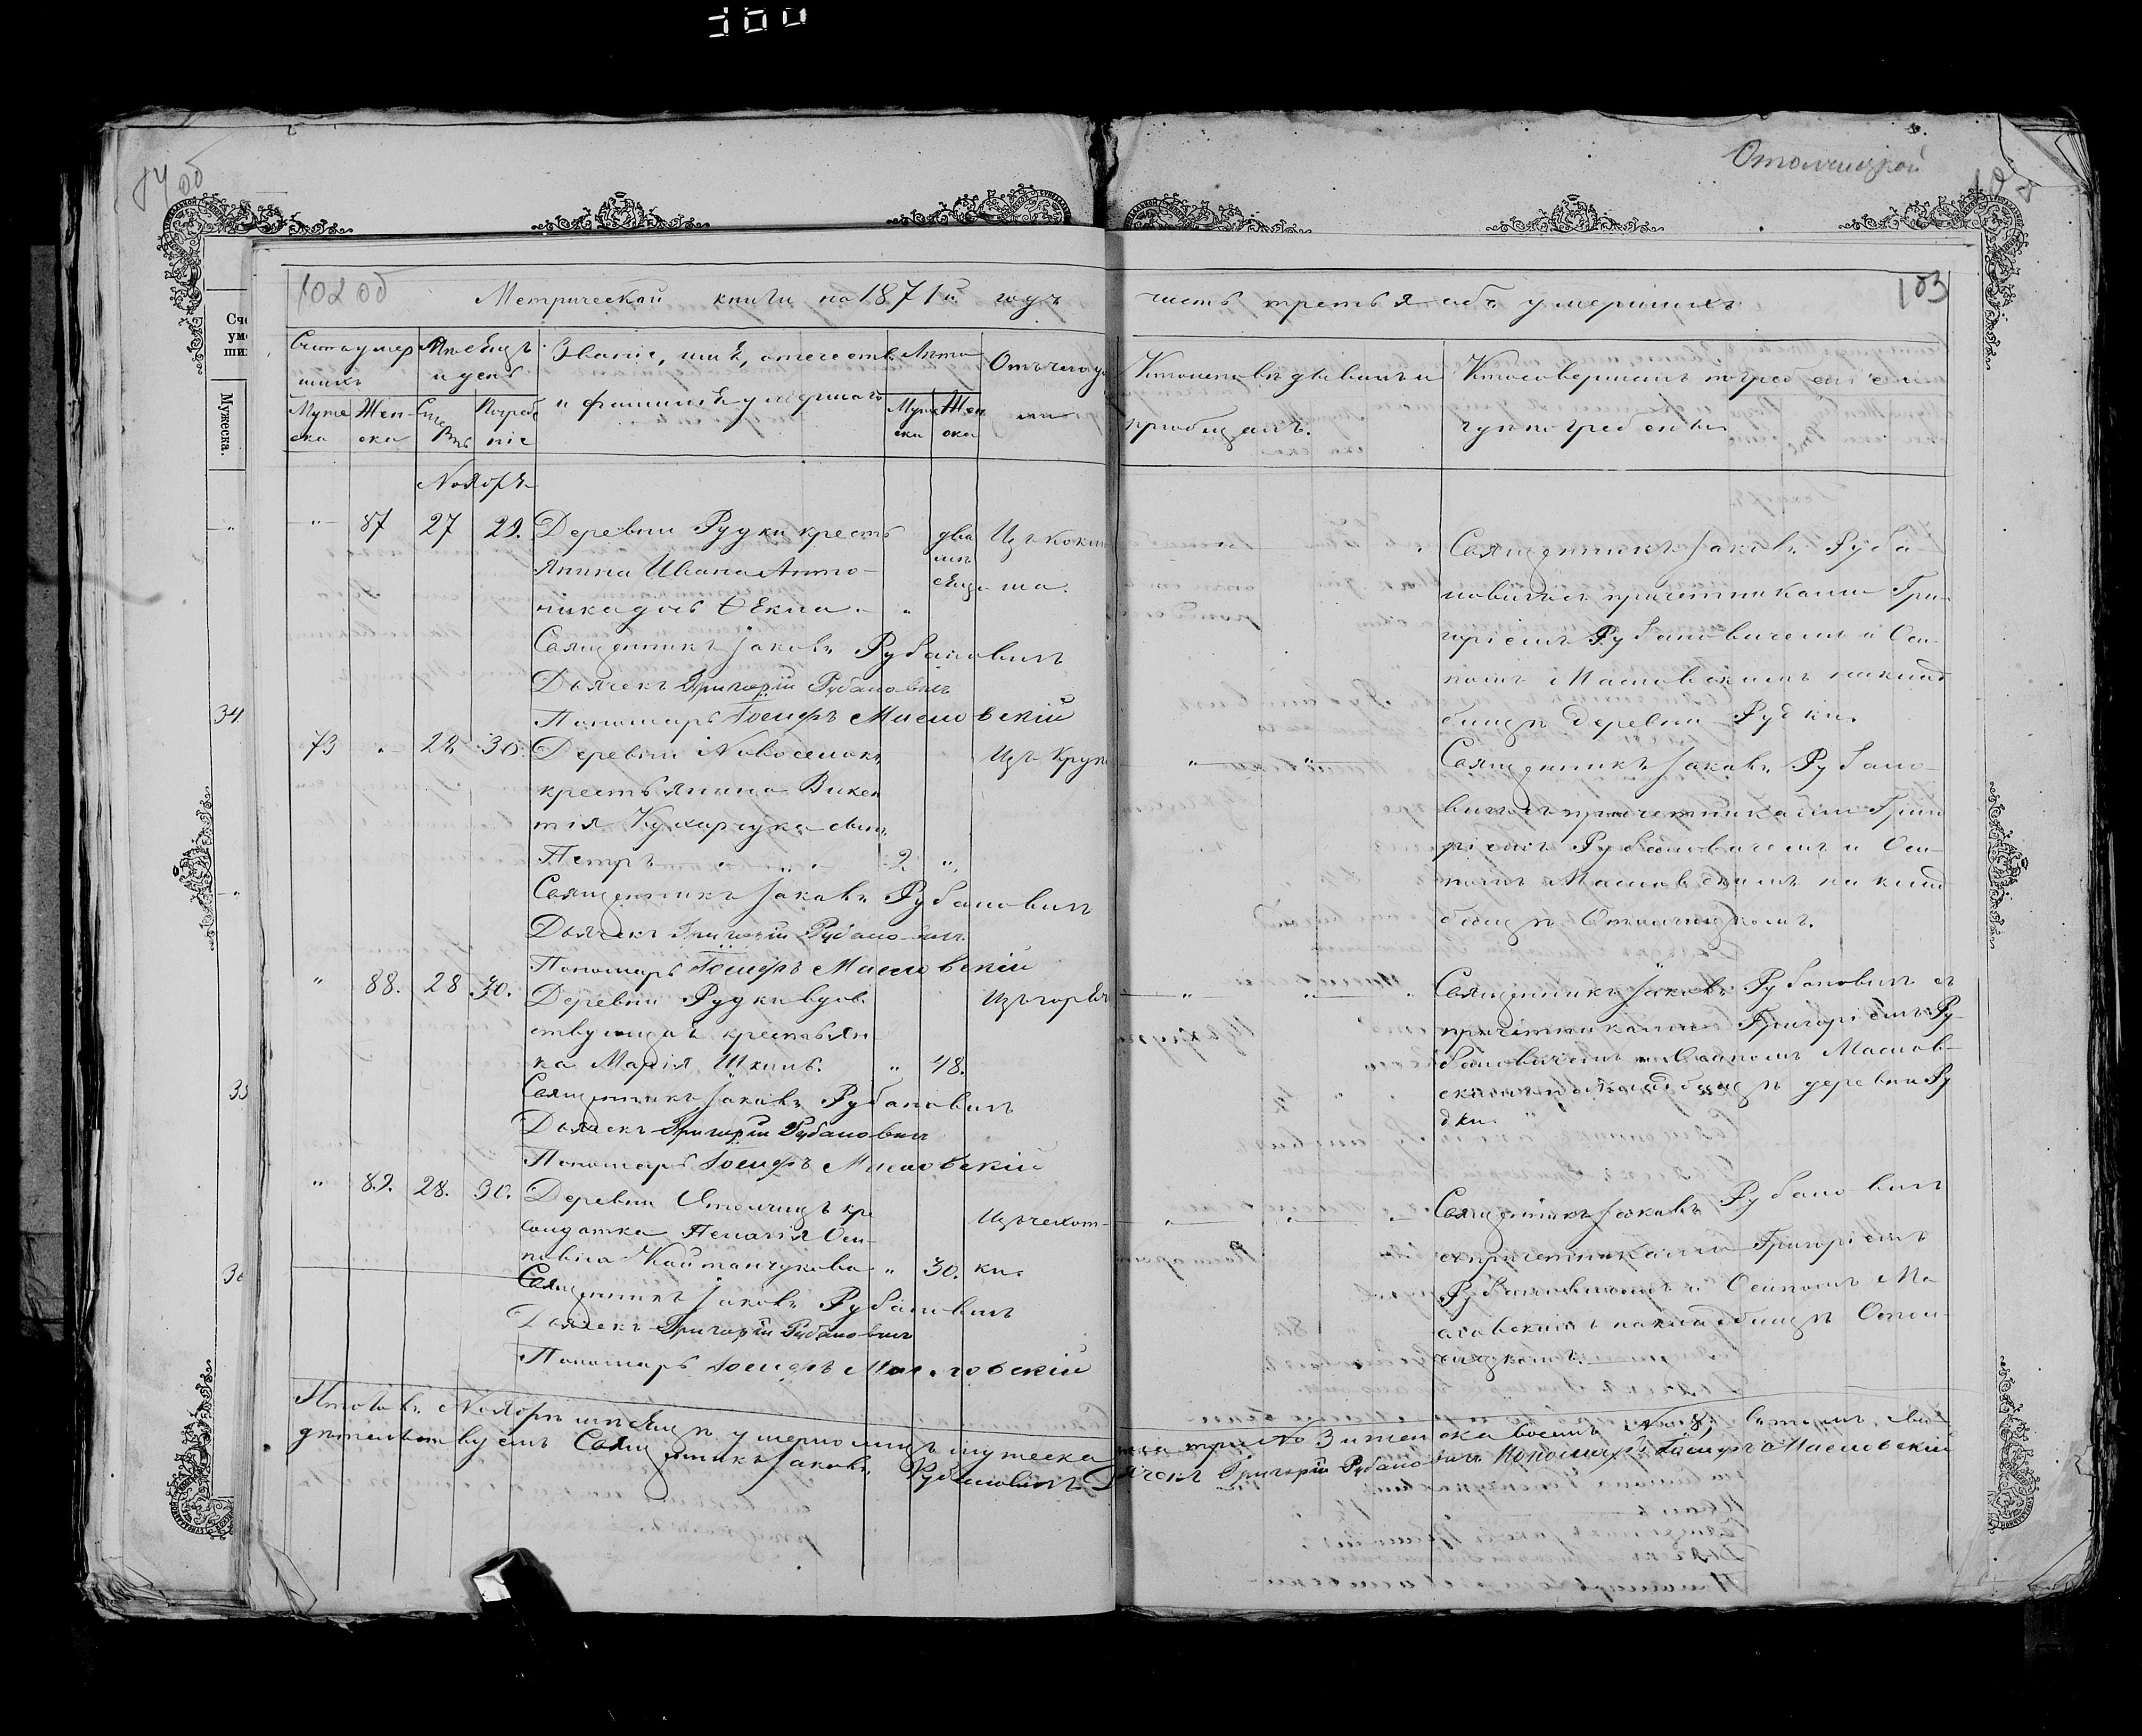 Отолчицкой
102 об
103
Метрической книги на 1871й годъ
часть третья объ умершихъ
Счетъ умер
шихъ
Мѣсяцъ
и день
Званіе, имя, отечество
и фамилія умершаго
Лѣта
Отъ чего у
Муже
ска
Жен
ска
Смерть
Погребе
ніе
Муже
ска
Жен
ска
Кто исповѣдывалъ и
пріобщалъ.
Кто совершалъ погребеніе и
гдѣ погребены
Сче
ум
ши
Мужеска.
34.
35
36
Ноябрь
" 87 27 29. Деревни Рудки кресть
янина Ивана Анто-
ника дочь Ѳекла.
два
мѣ
сяца
Изъ кокл
ша.
Священникъ Іаковъ Рубановичъ
Дьячекъ Григорій Рубановичъ
Пономарь Іосифъ Масловскій
Священникъ Іаковъ Руба
новичъ съ причетниками Гри-
горіемъ Рубановичемъ и Оси-
помъ Масловскимъ на клад
бищѣ деревни Рудки.
73 " 28 30. Деревни Новоселокъ
крестьянина Викен
тія Кухарчука сынъ
Петръ 2. "
Изъ круп
Священникъ Іаковъ Рубановичъ
Дьячекъ Григорій Рубановичъ
Пономарь Іосифъ Масловскій
Священникъ Іаковъ Рубано-
вичъ съ причетниками Григо
ріемъ Рубановичемъ и Оси-
помъ Масловскимъ на клад
бищѣ Отолчицкомъ.
" 88. 28 30. Деревни Рудки вдов
ствующая крестьян
ка Марія " 48.
Изъ горяч
Священникъ Іаковъ Рубановичъ
Дьячекъ Григорій Рубановичъ
Пономарь Іосифъ Масловскій
Священникъ Іаковъ Рубановичъ съ
причетниками Григоріемъ Ру-
бановичемъ и Осипомъ Маслов-
скимъ на кладбищѣ деревни Ру
дки.
" 89. 28. 30. Деревни Отолчицъ
солдатка Пелагія Оси-
пов " 30.
Изъ чехот-
ки.
Священникъ Іаковъ Рубановичъ
Дьячекъ Григорій Рубановичъ
Пономарь Іосифъ Масловскій
Священникъ Іаковъ Рубановичъ
съ причетниками Григоріемъ
Рубановичемъ и Осипомъ Ма
словскимъ на кладбищѣ Отол-
чицкомъ.
Итого въ Ноябрѣ мѣсяцѣ умерло лицъ мужеска пола три № 3 и женска восемь № 8, въ томъ сви
дѣтельствуемъ Священникъ Іаковъ Рубановичъ Дьячекъ Григорій Рубановичъ Пономарь Іосифъ Масловскій